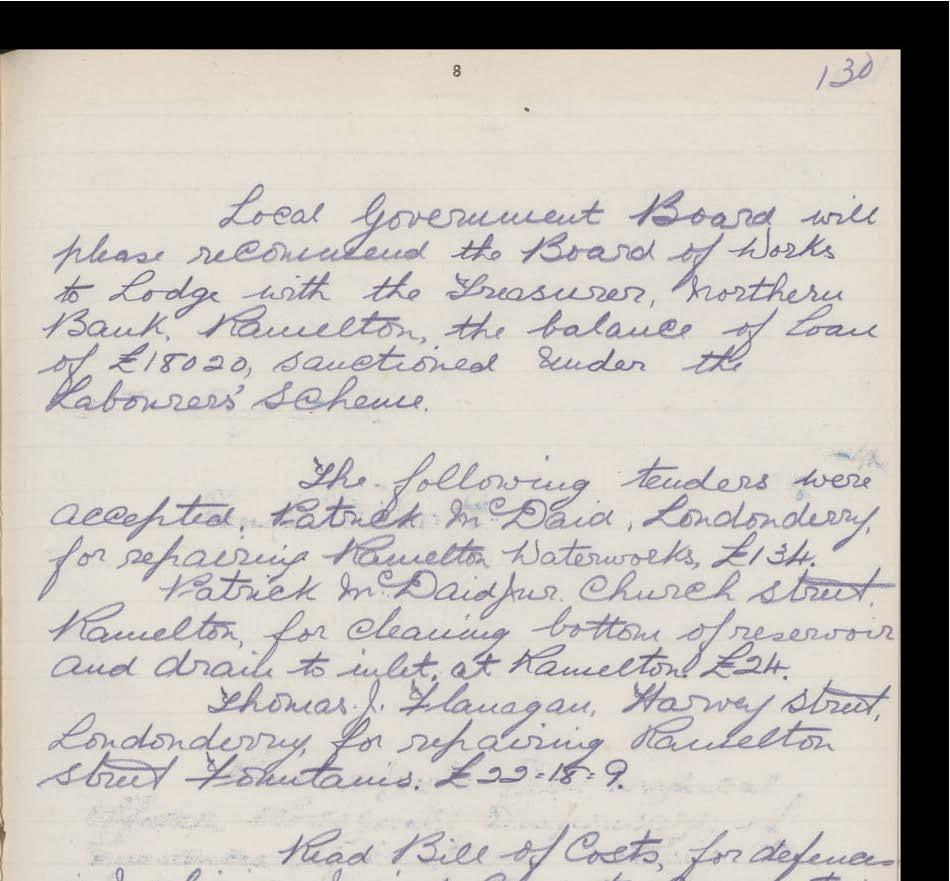 8
130
Local Government Board will
please recommend the Board of Works
to Lodge with the Treasurer, Northern
Bank, Ramelton, the balance of Loan
of £18020, sanctioned under the
Labourers' Scheme.
The following tenders were
accepted, Patrick McDaid, Londonderry,
for repairing Ramelton Waterworks, £134.
Patrick McDaid Junr. Church street,
Ramelton, for cleaning bottom of reservoir
and drain to inlet, at Ramelton. £24.
Thomas J. Flanagan, Harvey street,
Londonderry, for repairing Ramelton
street Fountains. £22=18=9.
Read Bill of Costs, for defences